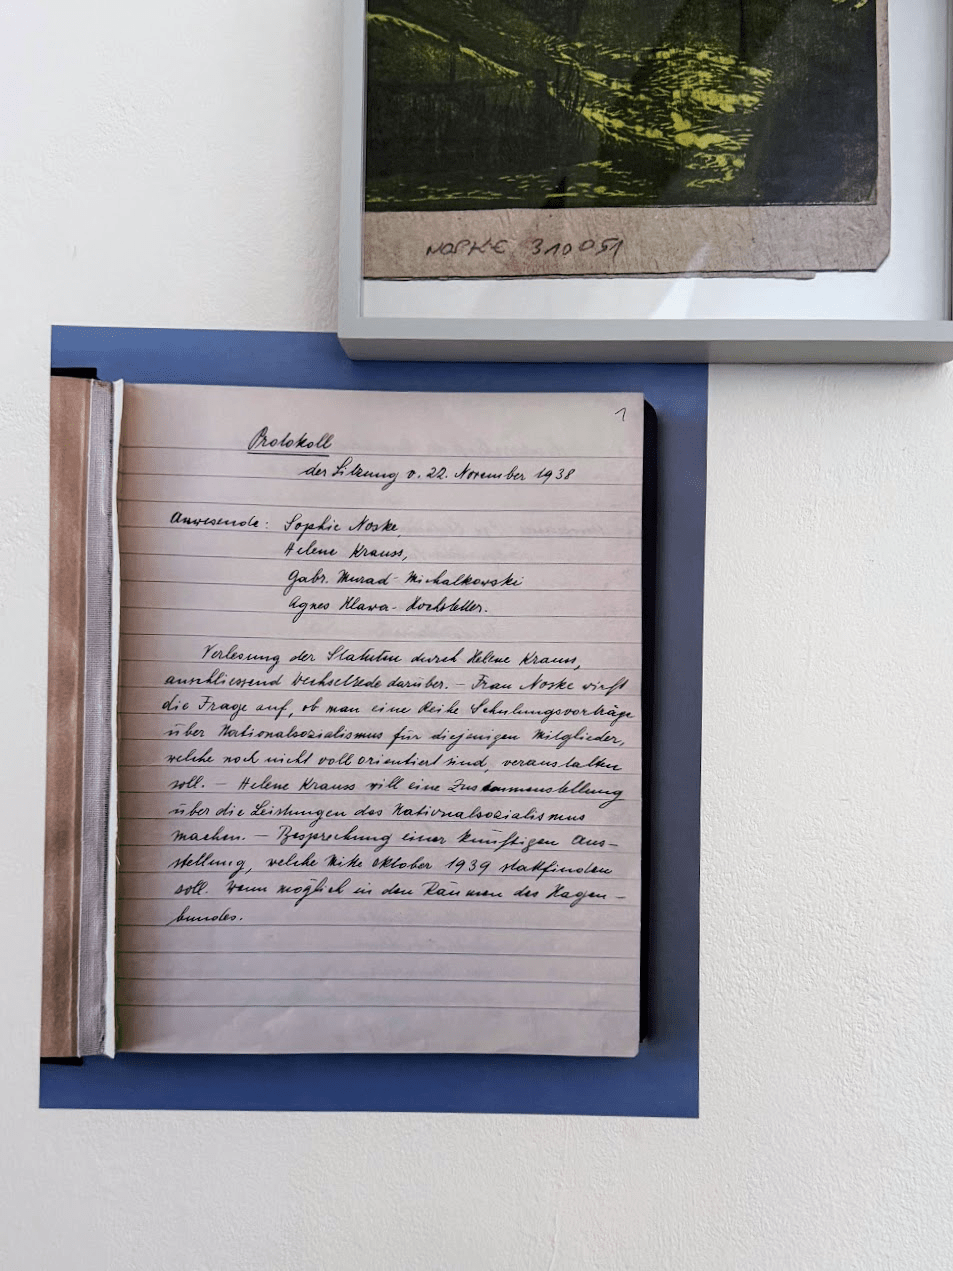 NOSKE 310051
1
Protokoll
der Sitzung v. 22. November 1938
Anwesende: Sophie Noske,
Helene Krauss,
Gabr. Murad-Michalkowski
Agnes Hlawa-Hochstetter.
Verlesung der Statuten durch Helene Krauss,
anschliessend Wechselrede darüber. – Frau Noske wirft
die Frage auf, ob man eine Reihe Schulungsvorträge
über Nationalsozialismus für diejenigen Mitglieder,
welche noch nicht voll orientiert sind, veranstalten
soll. – Helene Krauss will eine Zusammenstellung
über die Leistungen des Nationalsozialismus
machen. – Besprechung einer künftigen Aus-
stellung, welche Mitte Oktober 1939 stattfinden
soll. Wenn möglich in den Räumen des Hagen-
bundes.